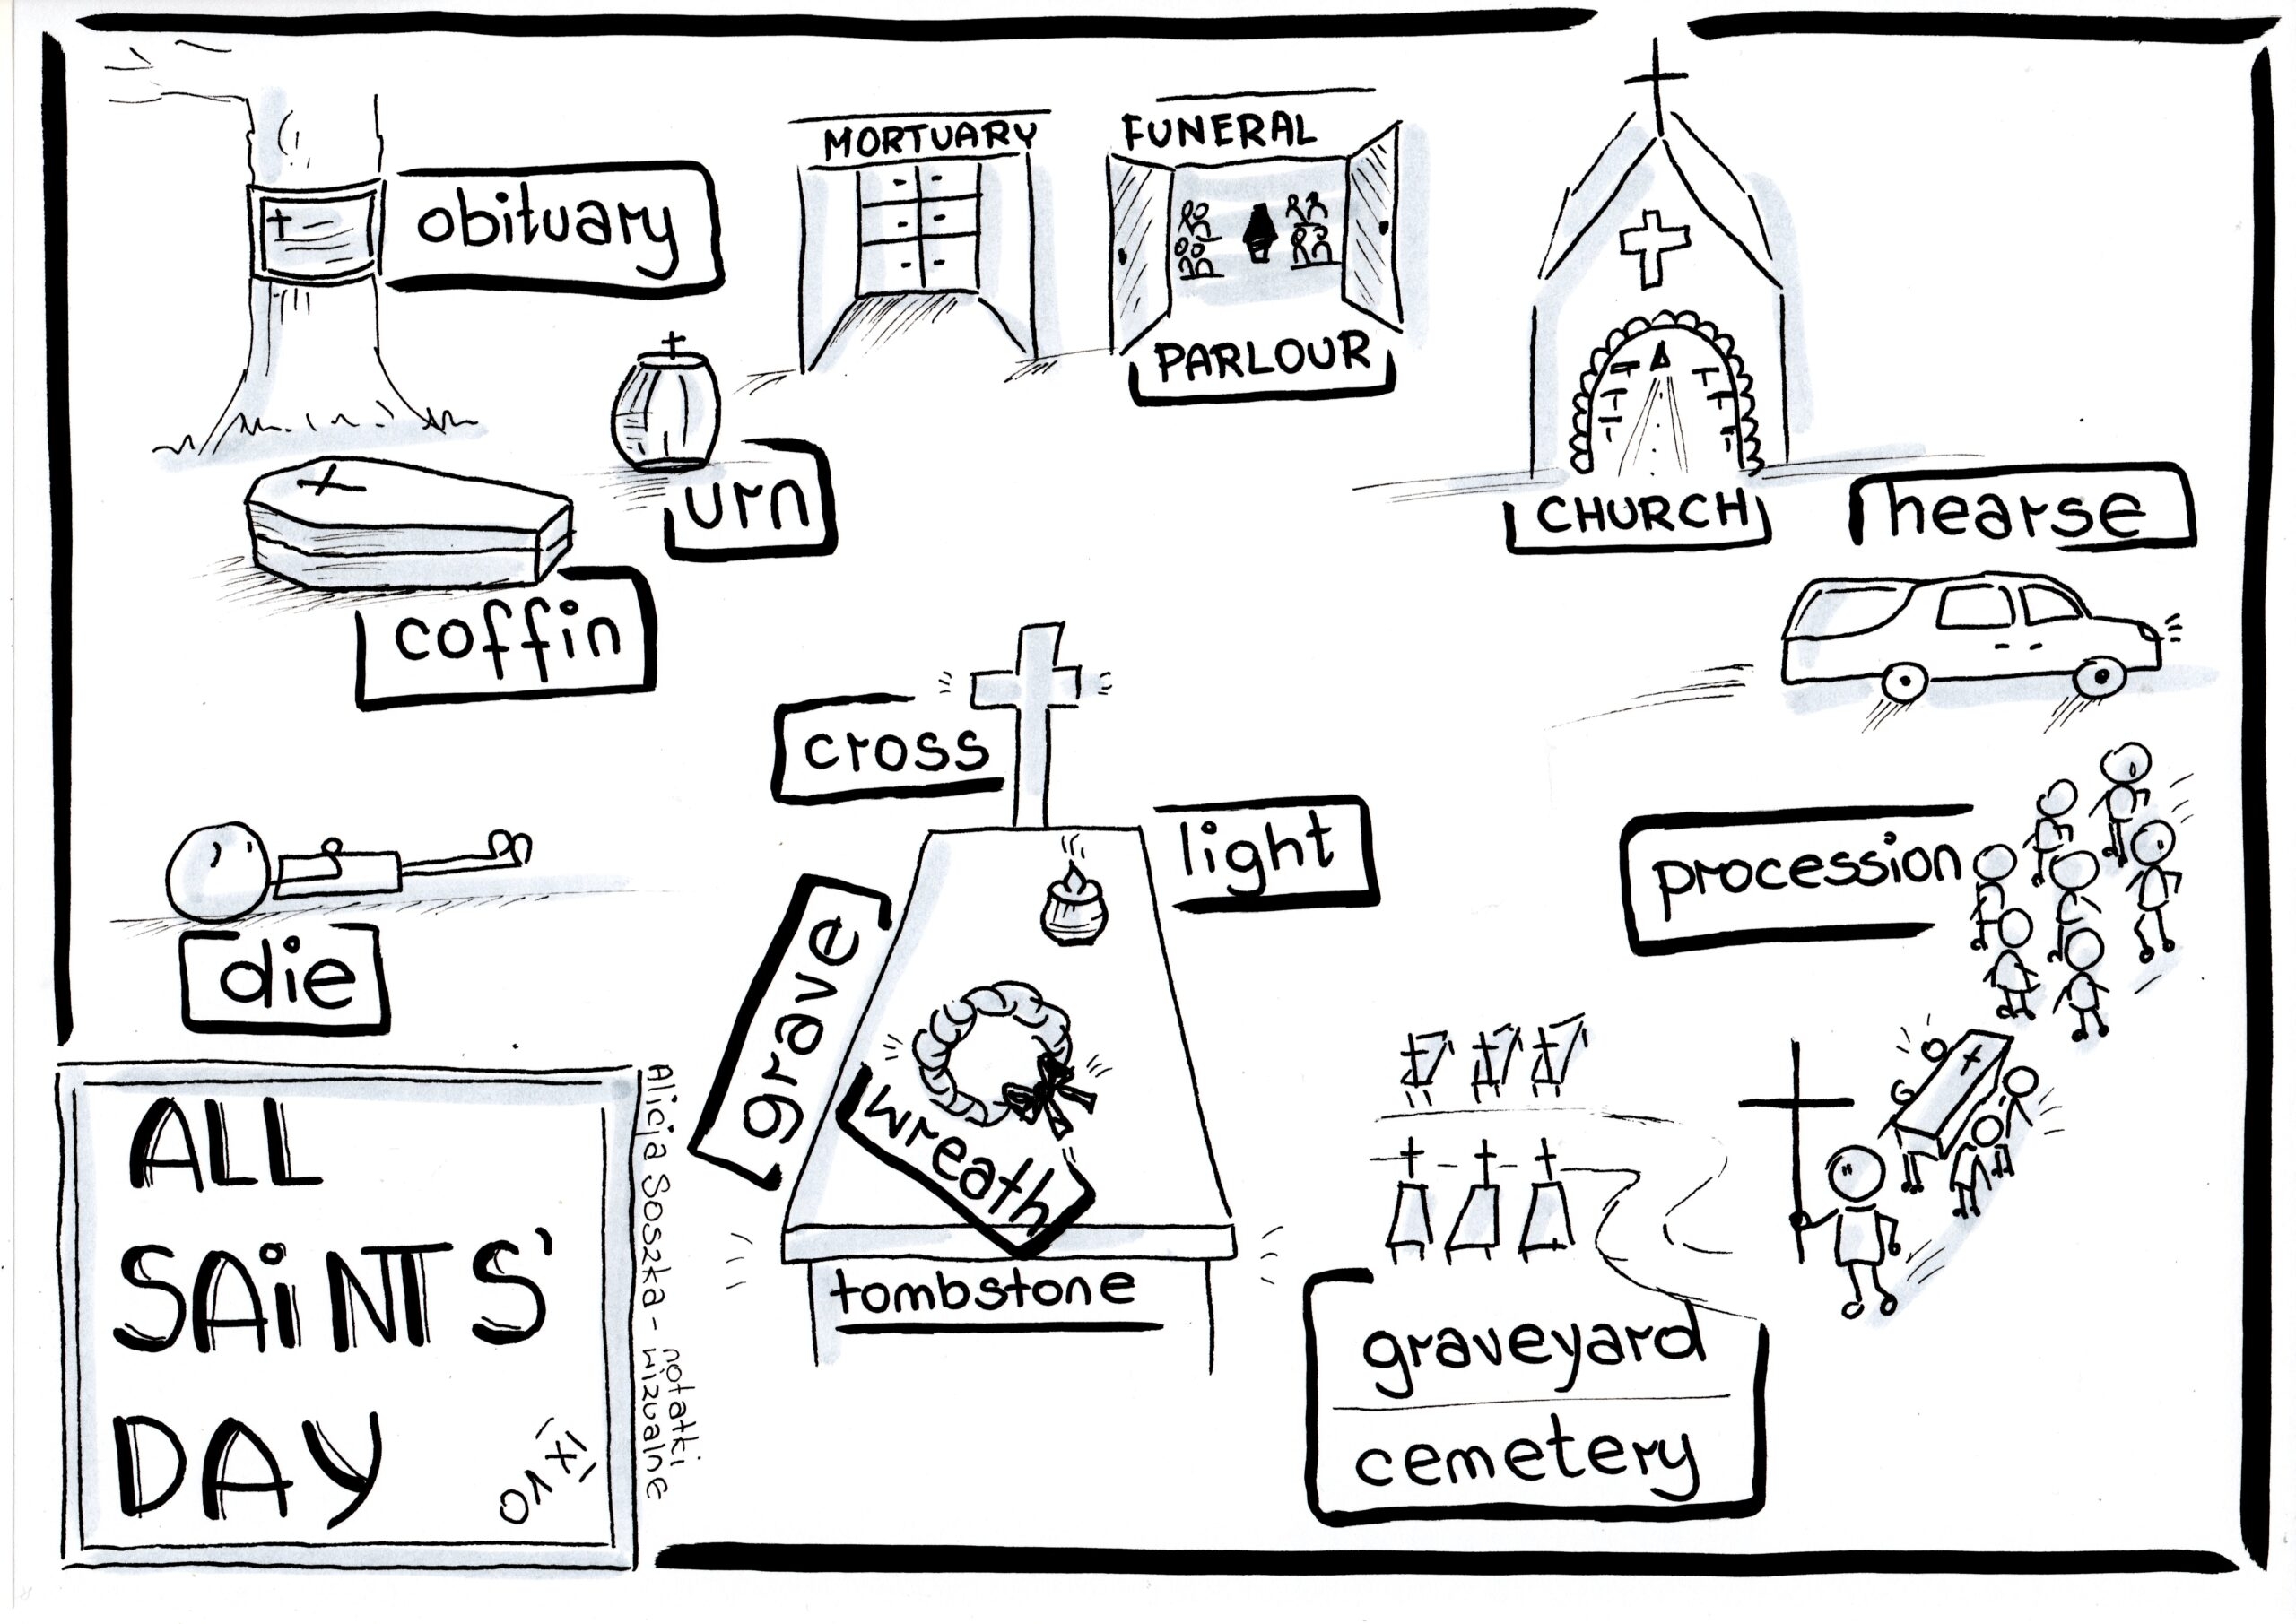 obituary
MORTUARY
FUNERAL
PARLOUR
urn
coffin
CHURCH
hearse
cross
light
procession
die
grave
wreath
tombstone
graveyard
cemetery
ALL
SAiNTS'
DAY
Alicja Soszka - notatki
wizualne